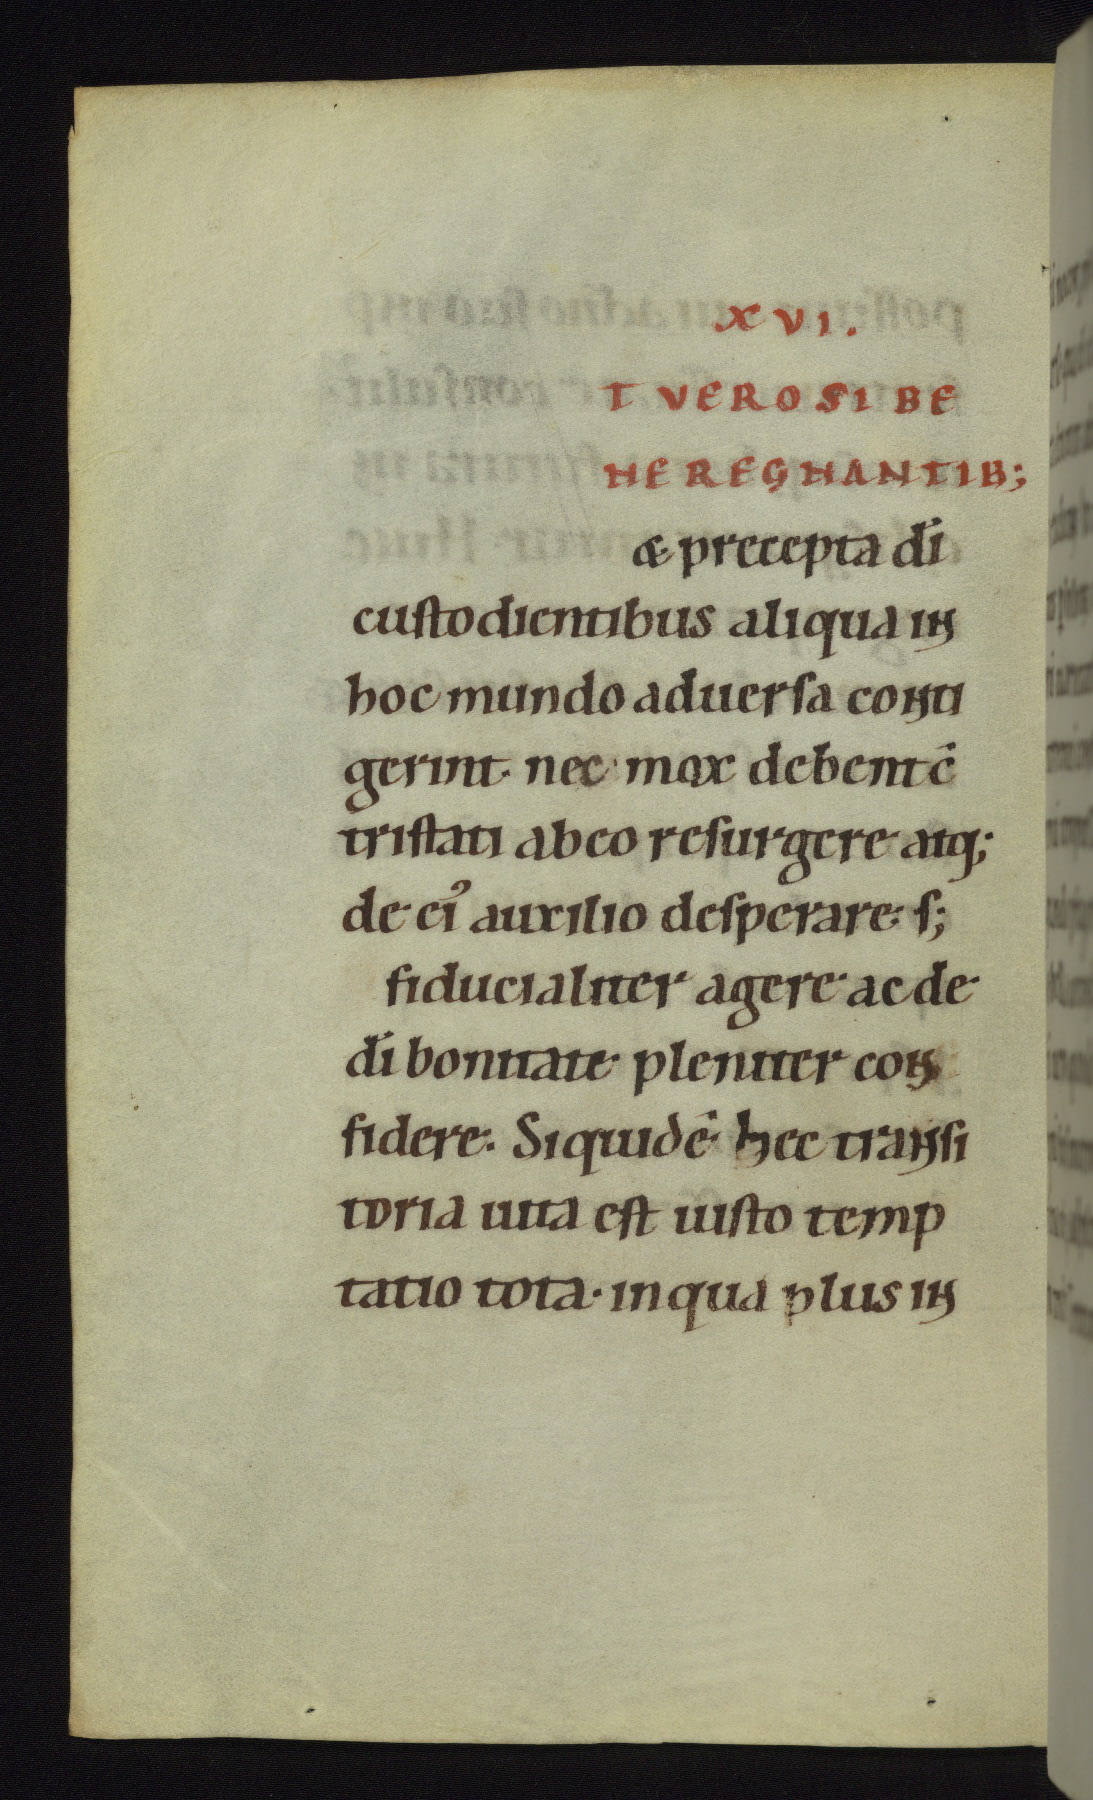 XVI.
T VERO SI BE
NE REGNANTIB;
& precepta dī
custodientibus aliqua in
hoc mundo aduersa conti
gerint. nec mox debent c̄
tristati ab eo resurgere atq;
de ei⁹ auxilio desperare. s;
fiducialiter agere ac de
dī bonitate pleniter con
fidere. Siquidē hec transi
toria uita est iusto temp
tatio tota. in qua plus in